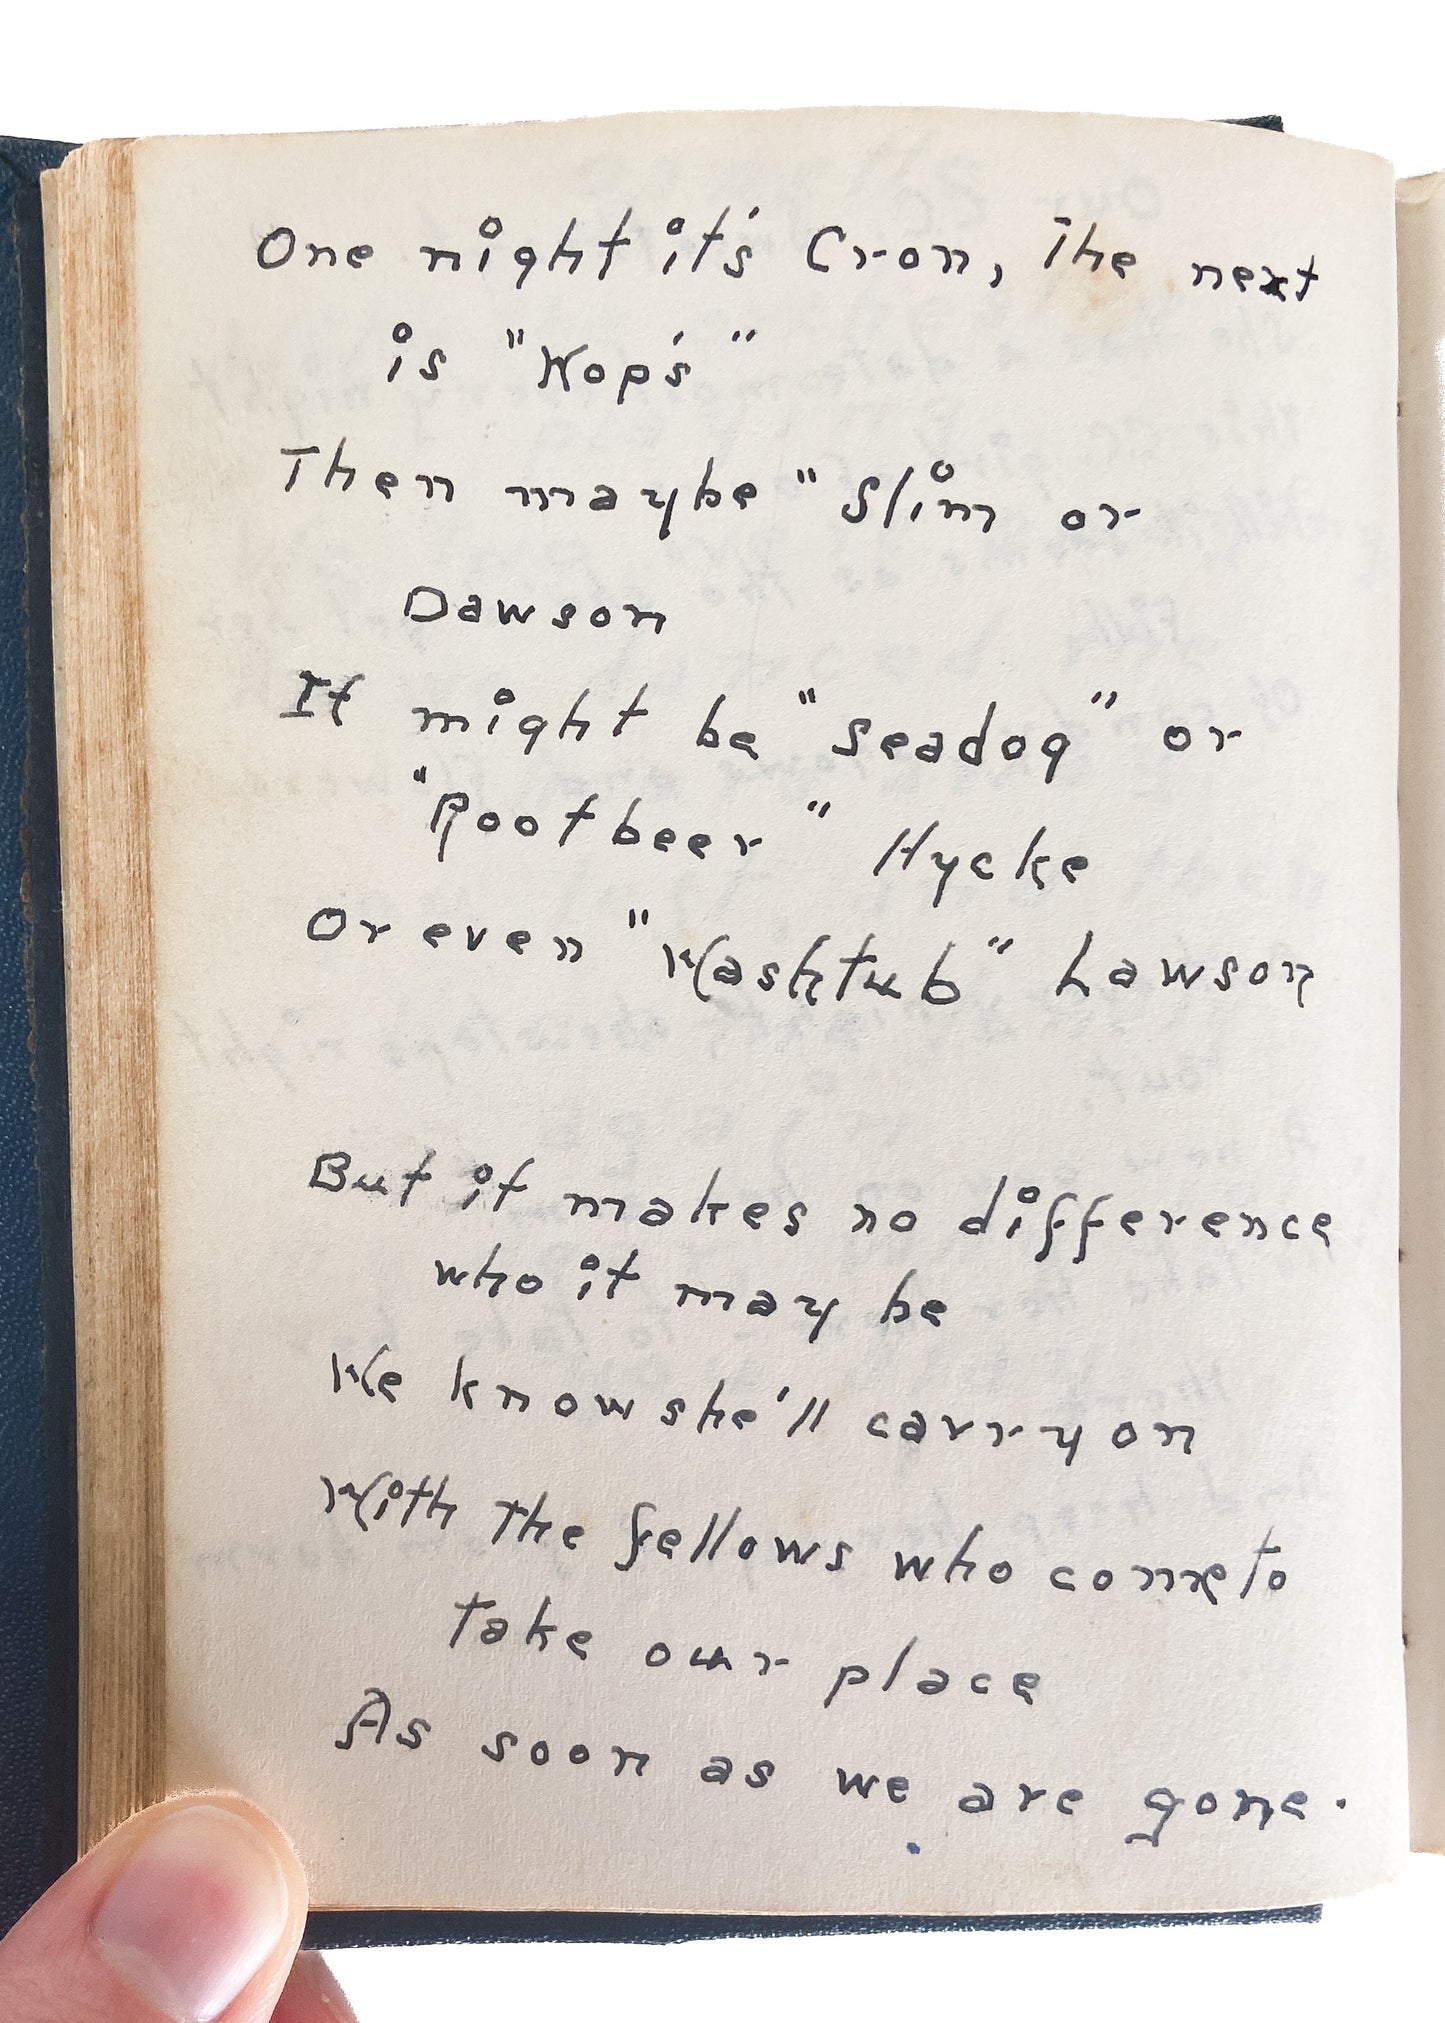 One night it's Cron, The next
is "Wop's"
Then maybe "Slim or
Dawson
It might be "Seadog" or
"Rootbeer" Hycke
Or even "Washtub" Lawson
But it makes no difference
who it may be
We know she'll carry on
With The fellows who come to
take our place
As soon as we are gone.